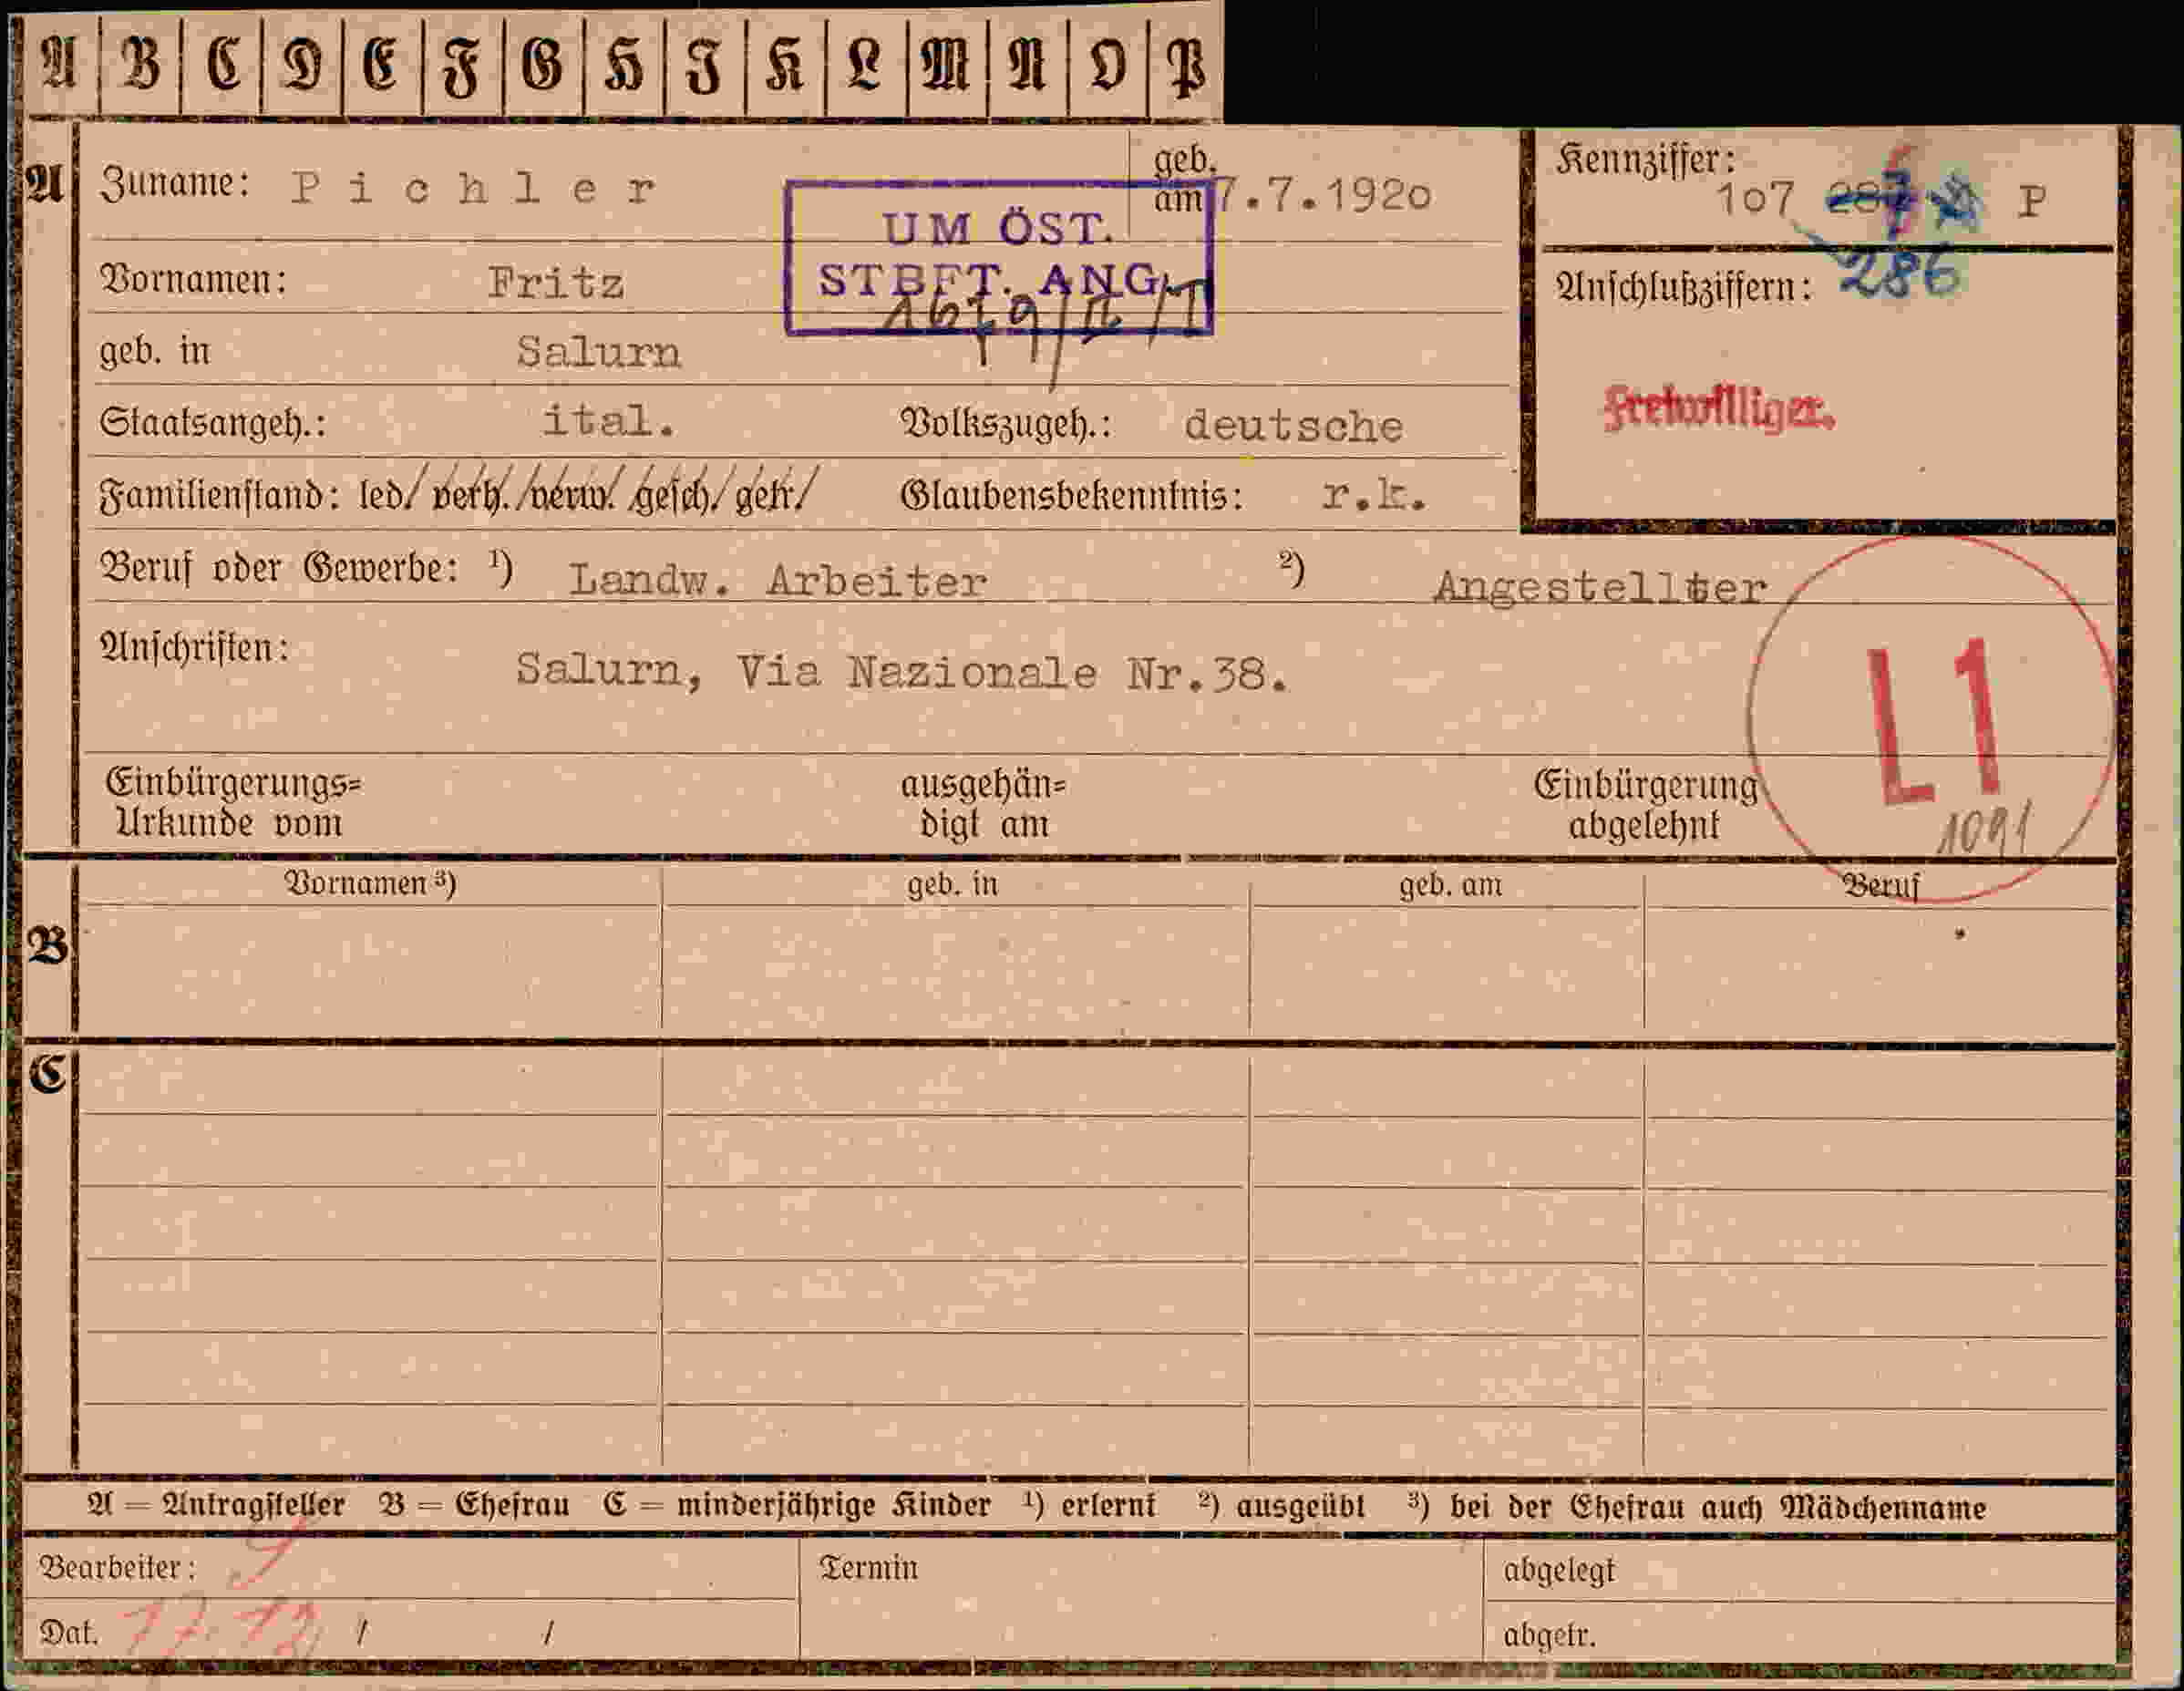 A B C D E F G H I K L M N O P
A Zuname: Pichler geb. am 7.7.1920
Kennziffer: 107 287 P
286
UM ÖST.
STBFT. ANG.
Vornamen: Fritz
Anschlußziffern:
geb. in Salurn
Freiwilliger.
Staatsangeh.: ital. Volkszugeh.: deutsche
Familienstand: led/ verh./verw./gesch/getr/ Glaubensbekenntnis: r.k.
Beruf oder Gewerbe: ¹) Landw. Arbeiter ²) Angestellter
Anschriften: Salurn, Via Nazionale Nr.38.
L1
1091
Einbürgerungs= ausgehän= Einbürgerung
Urkunde vom digt am abgelehnt
Vornamen ³) geb. in geb. am Beruf
B
C
A = Antragsteller B = Ehefrau C = minderjährige Kinder ¹) erlernt ²) ausgeübt ³) bei der Ehefrau auch Mädchenname
Bearbeiter: Termin abgelegt
Dat. / / abgetr.